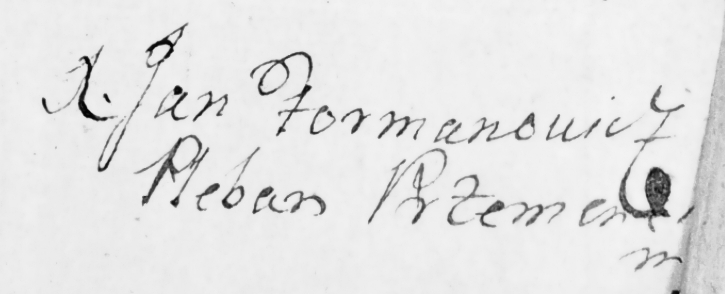 X. Jan Formanowicz
Pleban Przemeń
m